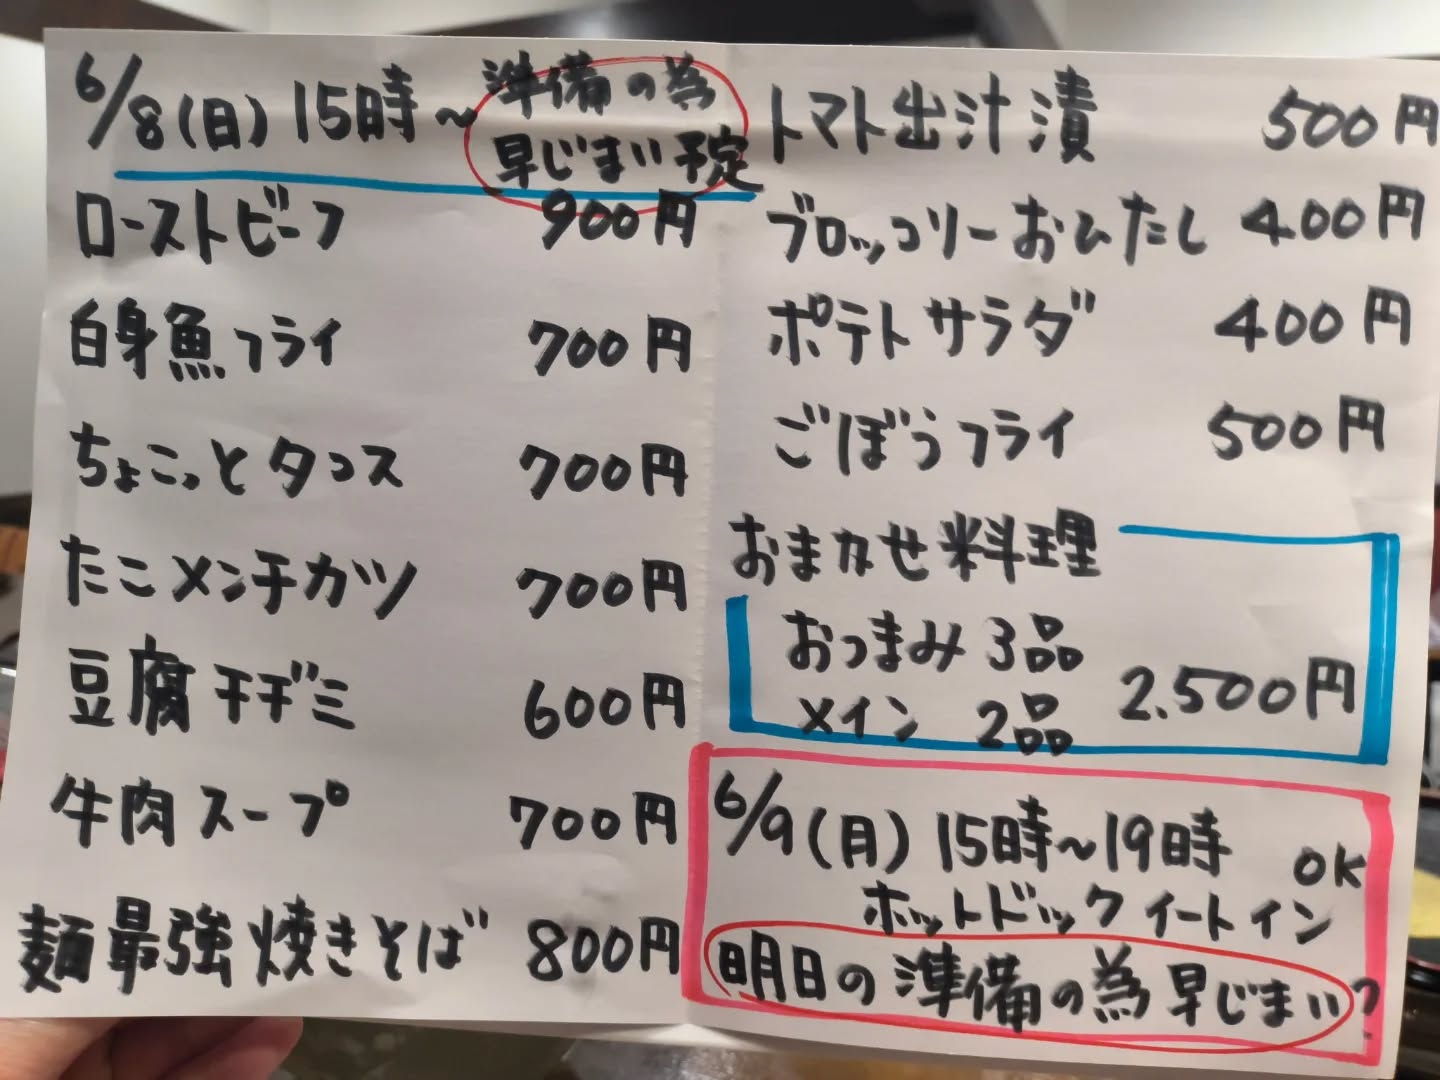 6/8(日)15時～準備の為
早じまい予定
ローストビーフ 900円
白身魚フライ 700円
ちょこっとタコス 700円
たこメンチカツ 700円
豆腐チヂミ 600円
牛肉スープ 700円
麺最強焼きそば 800円
トマト出汁漬 500円
ブロッコリーおひたし 400円
ポテトサラダ 400円
ごぼうフライ 500円
おまかせ料理
おつまみ3品
メイン 2品 2.500円
6/9(月)15時～19時 OK
ホットドックイートイン
明日の準備の為早じまい?